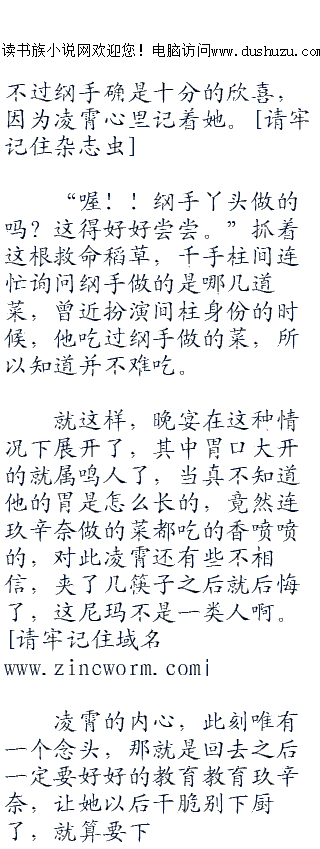 读书族小说网欢迎您！电脑访问www.dushuzu.com
不过纲手确是十分的欣喜，
因为凌霄心里记着她。[请牢
记住杂志虫]
“喔！！纲手丫头做的
吗？这得好好尝尝。”抓着
这根救命稻草，千手柱间连
忙询问纲手做的是哪几道
菜，曾近扮演间柱身份的时
候，他吃过纲手做的菜，所
以知道并不难吃。
就这样，晚宴在这种情
况下展开了，其中胃口大开
的就属鸣人了，当真不知道
他的胃是怎么长的，竟然连
玖辛奈做的菜都吃的香喷喷
的，对此凌霄还有些不相
信，夹了几筷子之后就后悔
了，这尼玛不是一类人啊。
[请牢记住域名
www.zincworm.com¡
凌霄的内心，此刻唯有
一个念头，那就是回去之后
一定要好好的教育教育玖辛
奈，让她以后干脆别下厨
了，就算要下